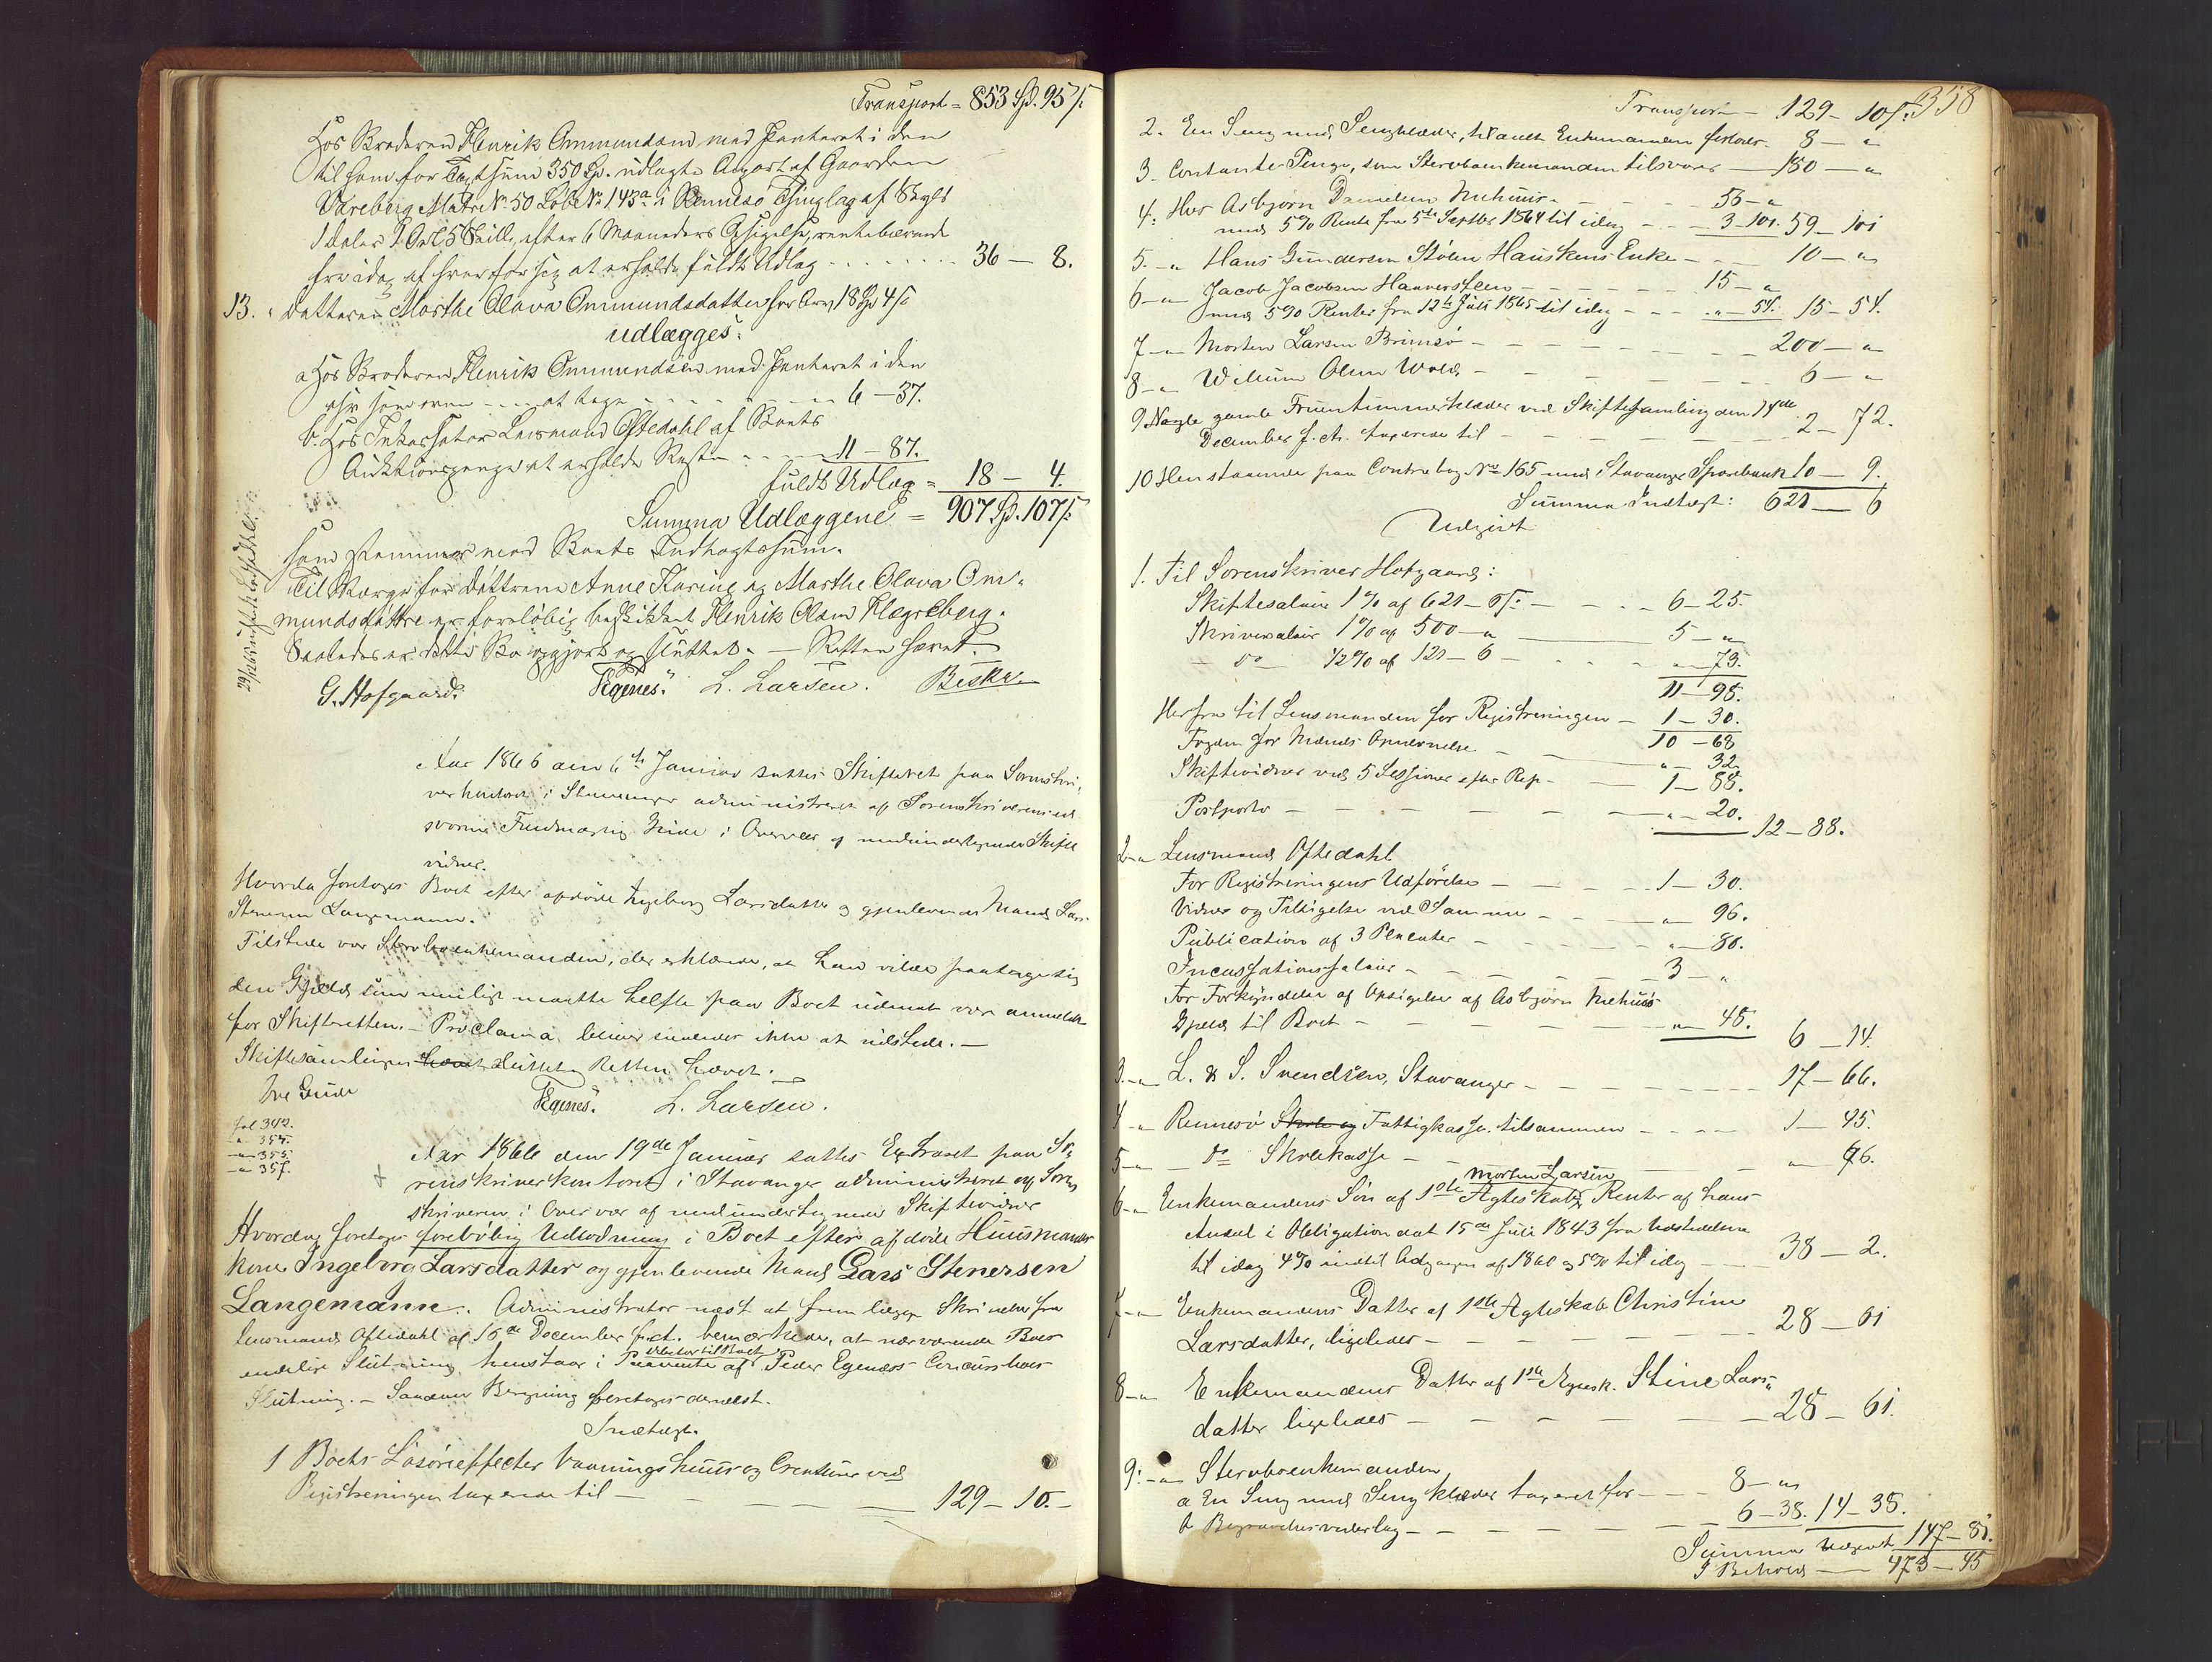 Transport = 853 Spd. 95 ß
Hos Broderen Henrik Ommundsen med Panteret i den
til ham for Taxtsum 350 Spd. udlagte Anpart af Gaarden
Vareberg Matr. No 50 Løbe No 143a i Rennesø Thinglag af Skyld
1 Daler 1 Ort 5 Skill., efter 6 Maaneders Opsigelse, rentebærende
fra idag af hvorfor sig at erholde fuldt Udlæg - - - - 36 — 8.
13. " Datteren Marthe Olava Ommundsdatter for Arv 18 Spd 4 ß
udlægges:
a Hos Broderen Henrik Ommundsen med Panteret i den
som oven - - - at tage - - - - 6 — 37.
b. Hos Inkassator Lensmand Oftedahl af Boets
Auktionspenge at erholde Resten - - - 11 — 87.
fuldt Udlæg = 18 — 4.
Summa Udlæggene = 907 Spd. 107 ß
som stemmer med Boets Indtægtssum.
Til Værge for Døttrene Anne Karine og Marthe Olava Om-
mundsdøttre er foreløbig beskikket Henrik Olsen Hægreberg.
Saaledes er dette Bo opgjort og sluttet. — Retten hævet.
G. Hofgaard. Egenes. L. Larsen. Beskr.
Aar 1866 den 6te Januar sattes Skifteret paa Sorenskri-
verkontoret i Stavanger administreret af Sorenskriverens ed-
svorne Fuldmægtig Gude i Overvær af medundertegnede Skifte
vidner.
Hvorda foretoges Boet efter afdøde Ingeborg Larsdatter og gjenlevende Mand Lars
Stenersen Langemann.
Tilstede var Stervboenkemanden, der erklærede, at han vilde paatage sig
den Gjeld som muligt maatte hefte paa Boet udenat være anmeldt
for Skifteretten. — Proclama bliver saaledes ikke at udstede. —
Skiftesamlingen hævet sluttet. Retten hævet.
Ove Gude Egenes. L. Larsen.
fol 342.
" 354.
" 355.
" 357.
Aar 1866 den 19de Januar sattes Extraret paa So-
renskriverkontoret i Stavanger administreret af Soren
skriveren i Overvær af medundertegnede Skiftevidner
Hvorda foretoges foreløbig Udlodning i Boet efter afdøde Huusmands
kone Ingeborg Larsdatter og gjenlevende Mand Lars Stenersen
Langemann. Administrator næst at fremlægge Skrivelse fra
Lensmand Oftedahl af 16de December f. A. bemærkede, at nærværende Boes
endelige Slutning henstaar i Paavente af Debitor til Boet Peder Egenæss Concursboes
Slutning. — Saadan Beregning foretoges dernæst.
Indtægt.
1 Boets Løsøreeffecter Vaaningshuus og Creaturer ved
Registreringen taxerede til — — — — 129 — 10. —
358
Transport — 129 — 10 ß.
2. En Seng med Sengklæder, tilladt Enkemanden forlods. 8 — "
3. Contante Penge, som Stervboenkemanden tilsvarer — 180 — "
4. Hos Asbjørn Danielsen Mehuus - - - 56 — "
med 5% Rente fra 5te Septbr 1864 til idag - - - 3 — 101. 59 — 101
5. — " Hans Gundersen Stølen Hauskens Enke - - - 10 — "
6 — " Jacob Jacobsen Hanversteen - - - 15 — "
med 5% Renter fra 12te Juli 1865 til idag - - - " — 54. 15 — 54.
7 — " Morten Larsen Brimsø - - - 200 — "
8 — " Willum Olsen Wold - - - 6 — "
9 Nogle gamle Fruentimmerklæder ved Skiftesamling den 14de
December f. A. taxerede til - - - 2 — 72.
10 Henstaaende paa Contrabog No 165 med Stavanger Sparebank 10 — 9.
Summa Indtægt: 621 — 6
Udgivt
1. Til Sorenskriver Hofgaard:
Skiftesalair 1% af 621 — 6 ß. - - - 6 — 25.
Skriversalair 1% af 500 — " — 5 — "
— do — 1/2% af 121 — 6 - - - " — 73.
11 — 98.
Herfra til Lensmanden for Registreringen — 1 — 30.
10 — 68
Fogden for Mænds Opnævnelse — " — 32
Skiftevidner ved 5 Sessioner efter Rep. — 1 — 88.
Postporto — — — " — 20. 12 — 88.
2 — " Lensmand Oftedahl
For Registreringens Udførelse — — — 1 — 30.
Vidner og Tilsigelse ved Samme - - - " — 96.
Publication af 3 Placater - - - " — 80.
Incassationssalair - - - 3 — "
For Forkyndelse af Opsigelse af Asbjørn Mehuus
Gjeld til Boet — — — " — 48. 6 — 14.
3. — " L. & S. Svendsen, Stavanger - - - 17 — 66.
4 — " Rennesø Skole og Fattigkasse tilsammen - - - 1 — 45.
5 — " — do — Skolekasse — — " — 96.
6 — " Enkemandens Søn af 1ste Ægteskab Morten Larsen Renter af hans
Andeel i Obligation dat 15de Juli 1843 fra Udstedelsen
til idag 4% indtil Udgangen af 1860 og 5% til idag — 38 — 2.
7 — " Enkemandens Datter af 1ste Ægteskab Christine
Larsdatter, ligeledes — — — 28 — 61
8 — " Enkemandens Datter af 1ste Ægtesk. Stine Lars-
datter ligeledes — — — 28 — 61.
9. — " Stervboenkemanden
a En Seng med Sengklæder taxeret for - - - 8 — "
b Begravelsesvederlag - - - 6 — 38. 14 — 38.
Summa Udgivt 147 — 81.
I Behold — 473 — 45